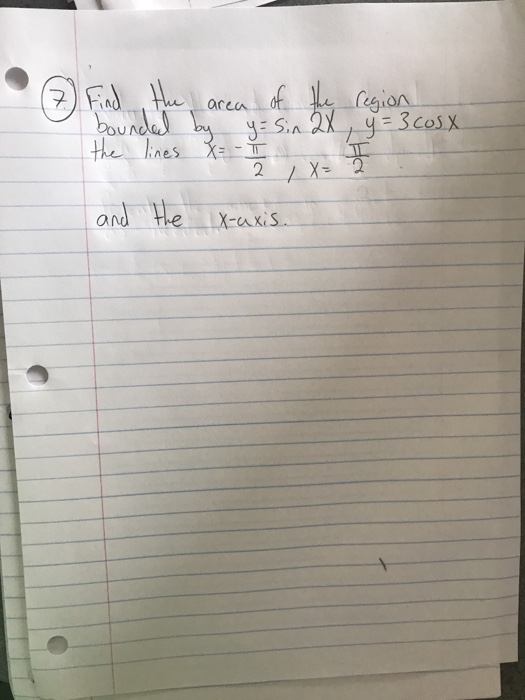 7 Find the area of the region
bounded by y = sin 2x, y = 3 cos x
the lines x = -π/2, x = π/2
and the x-axis.